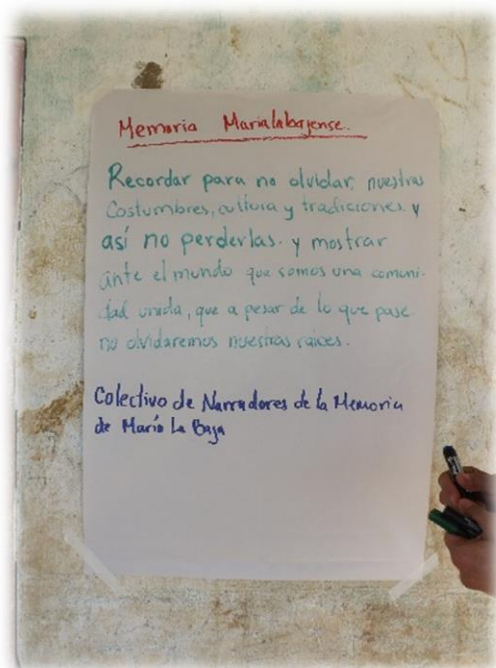 Memoria Marialabajense.
Recordar para no olvidar, nuestras
Costumbres, cultura y tradiciones. y
así no perderlas. y mostrar
ante el mundo que somos una comuni-
dad unida, que a pesar de lo que pase
no olvidaremos nuestras raices.
Colectivo de Narradores de la Memoria
de María La Baja